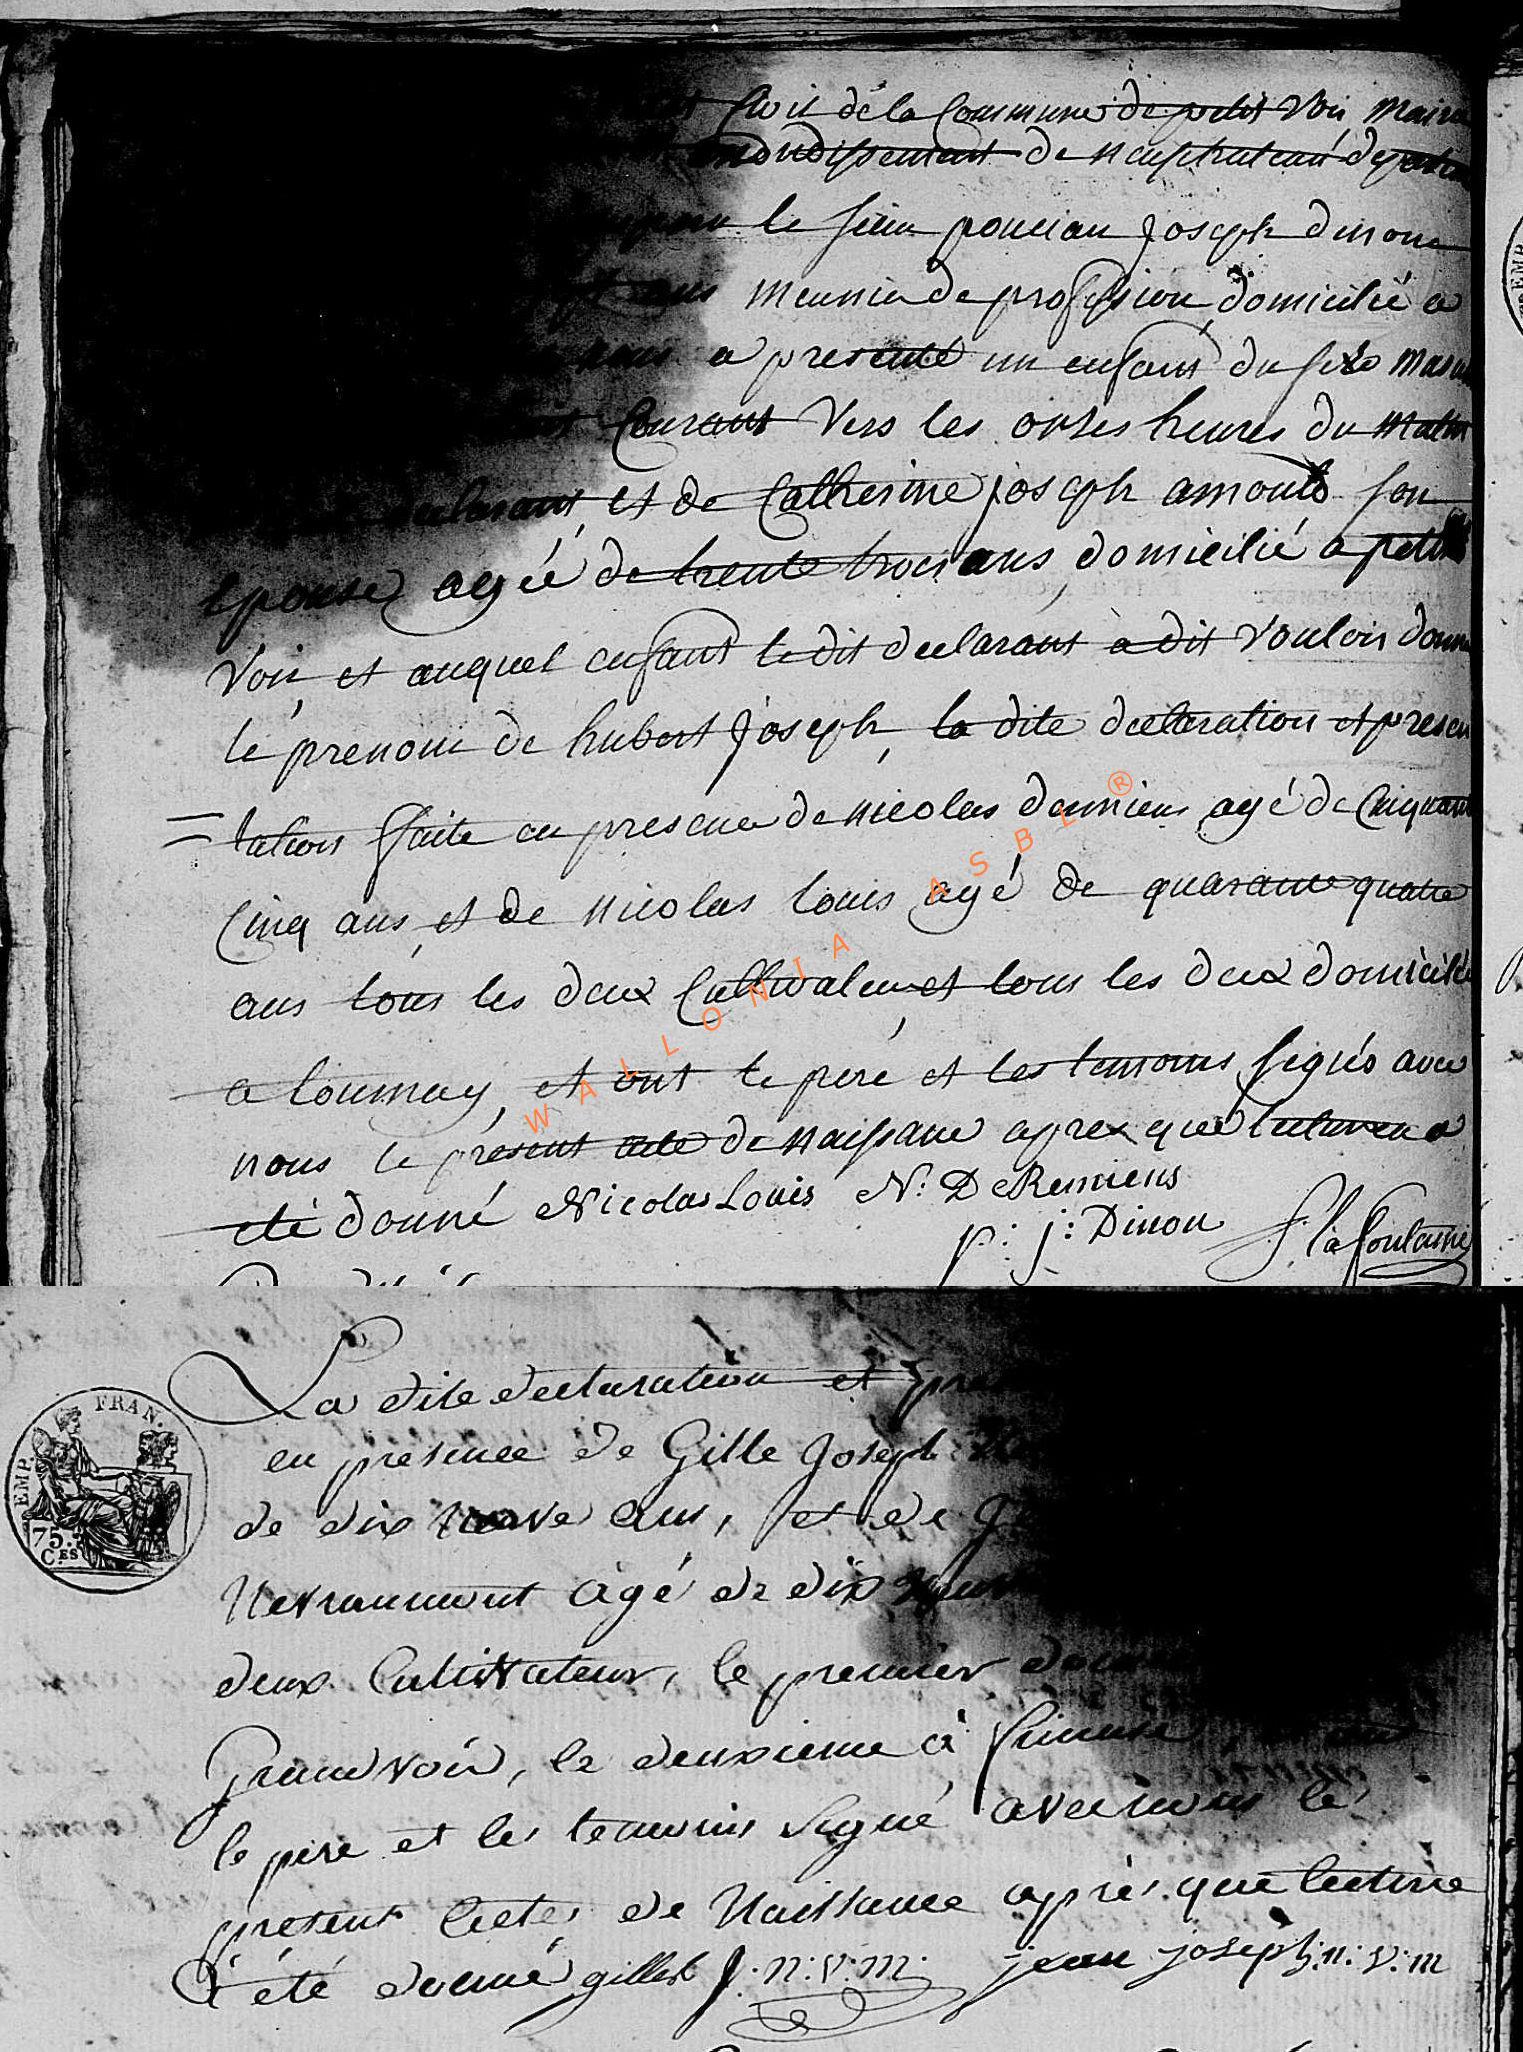 Civil de la Commune de petit Voir Mairie
arrondissement de neufchateau depart
le sieur poncian Joseph dinon
ans meunier de profession domicilié a
nous a presenté un enfant du sexe mascu
Courant Vers les onses heures du matin
declarant, et de Catherine joseph arnould son
epouse, agéé de trente trois ans, domicilié a petit
Voir, et auquel enfant le dit declarant à dit Vouloir donner
le prenom de hubert Joseph, la dite declaration et presen
= tation faite en presence de nicolas age de Cinquante
Cinq ans, et de nicolas louis agé de quarante quatre
ans tous les deux Cultivateur, et tous les deux domicilié
a tournay, et ont le peré et les temoins signés avec
nous le présent acte de naissance apres que lecture a
eté donné Nicolas Louis N: DeRemiens
p: j: Dinon la fontaine
La dite declaration et pre
en presence de Gille Joseph
de dix neuve ans, et de
Nevraumont agé de dix neuf
deux Cultivateur, le premier
Grandvoir, le deuxieme à
le pere et les temoins signé avec nous le
present acte, de Naissance après que lecture
à été donné gilles J: n: v: m: jean joseph: n: v: m
EMP. FRAN.
75. Ces
WALLONIA ASBL ®